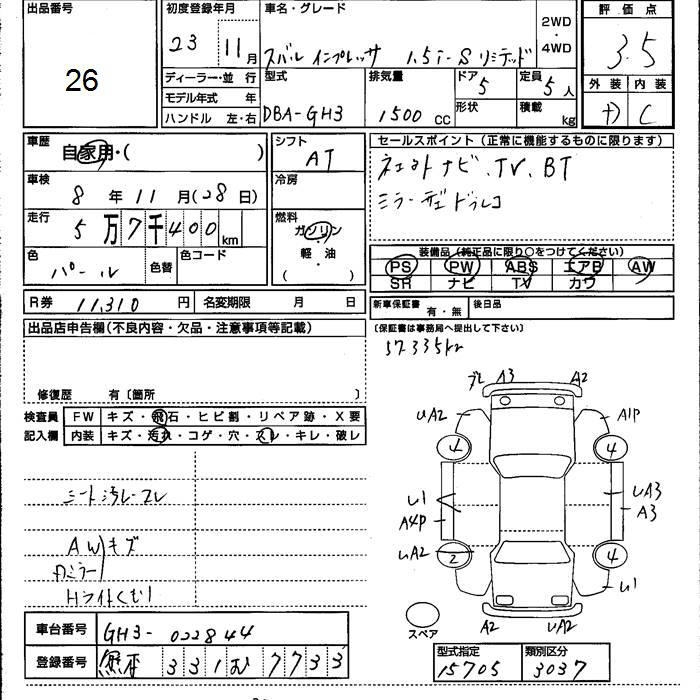 出品番号
26
初度登録年月
23 11月
車名・グレード
スバル インプレッサ 1.5i-S リミテッド
2WD
・
4WD
評価点
3.5
外装 内装
C
ディーラー・並行
モデル年式 年
ハンドル 左・右
型式
DBA-GH3
排気量
1500 CC
ドア
5
形状
定員
5人
積載
kg
車歴
自家用・( )
車検
8年11月(28日)
走行
5万7千400km
色
パール
色替
色コード
シフト
AT
冷房
燃料
ガソリン
・
軽油
( )
セールスポイント(正常に機能するものに限ります)
ナビ、TV、BT
ミラー型ドラレコ
装備品(純正品に限り○をつけてください)
PS PW ABS エアB AW
SR ナビ TV カワ
R券 11,310円
名変期限 月 日
新車保証書 有・無
後日品
(保証書は事務局へ提出して下さい)
57.335km
出品店申告欄(不良内容・欠品・注意事項等記載)
修復歴 有〔箇所 〕
検査員
記入欄
FW キズ・飛石・ヒビ割・リペア跡・X要
内装 キズ・汚れ・コゲ・穴・スレ・キレ・破レ
シート汚レスレ
AWキズ
Dミラー
Hライトくもり
A3 A2
UA2 A1P
4 4
U1 UA3
A4P A3
UA2 2 4
U1
A2 UA2
スペア
車台番号 GH3-022844
登録番号 熊本 331 む 7733
型式指定 類別区分
15705 3037